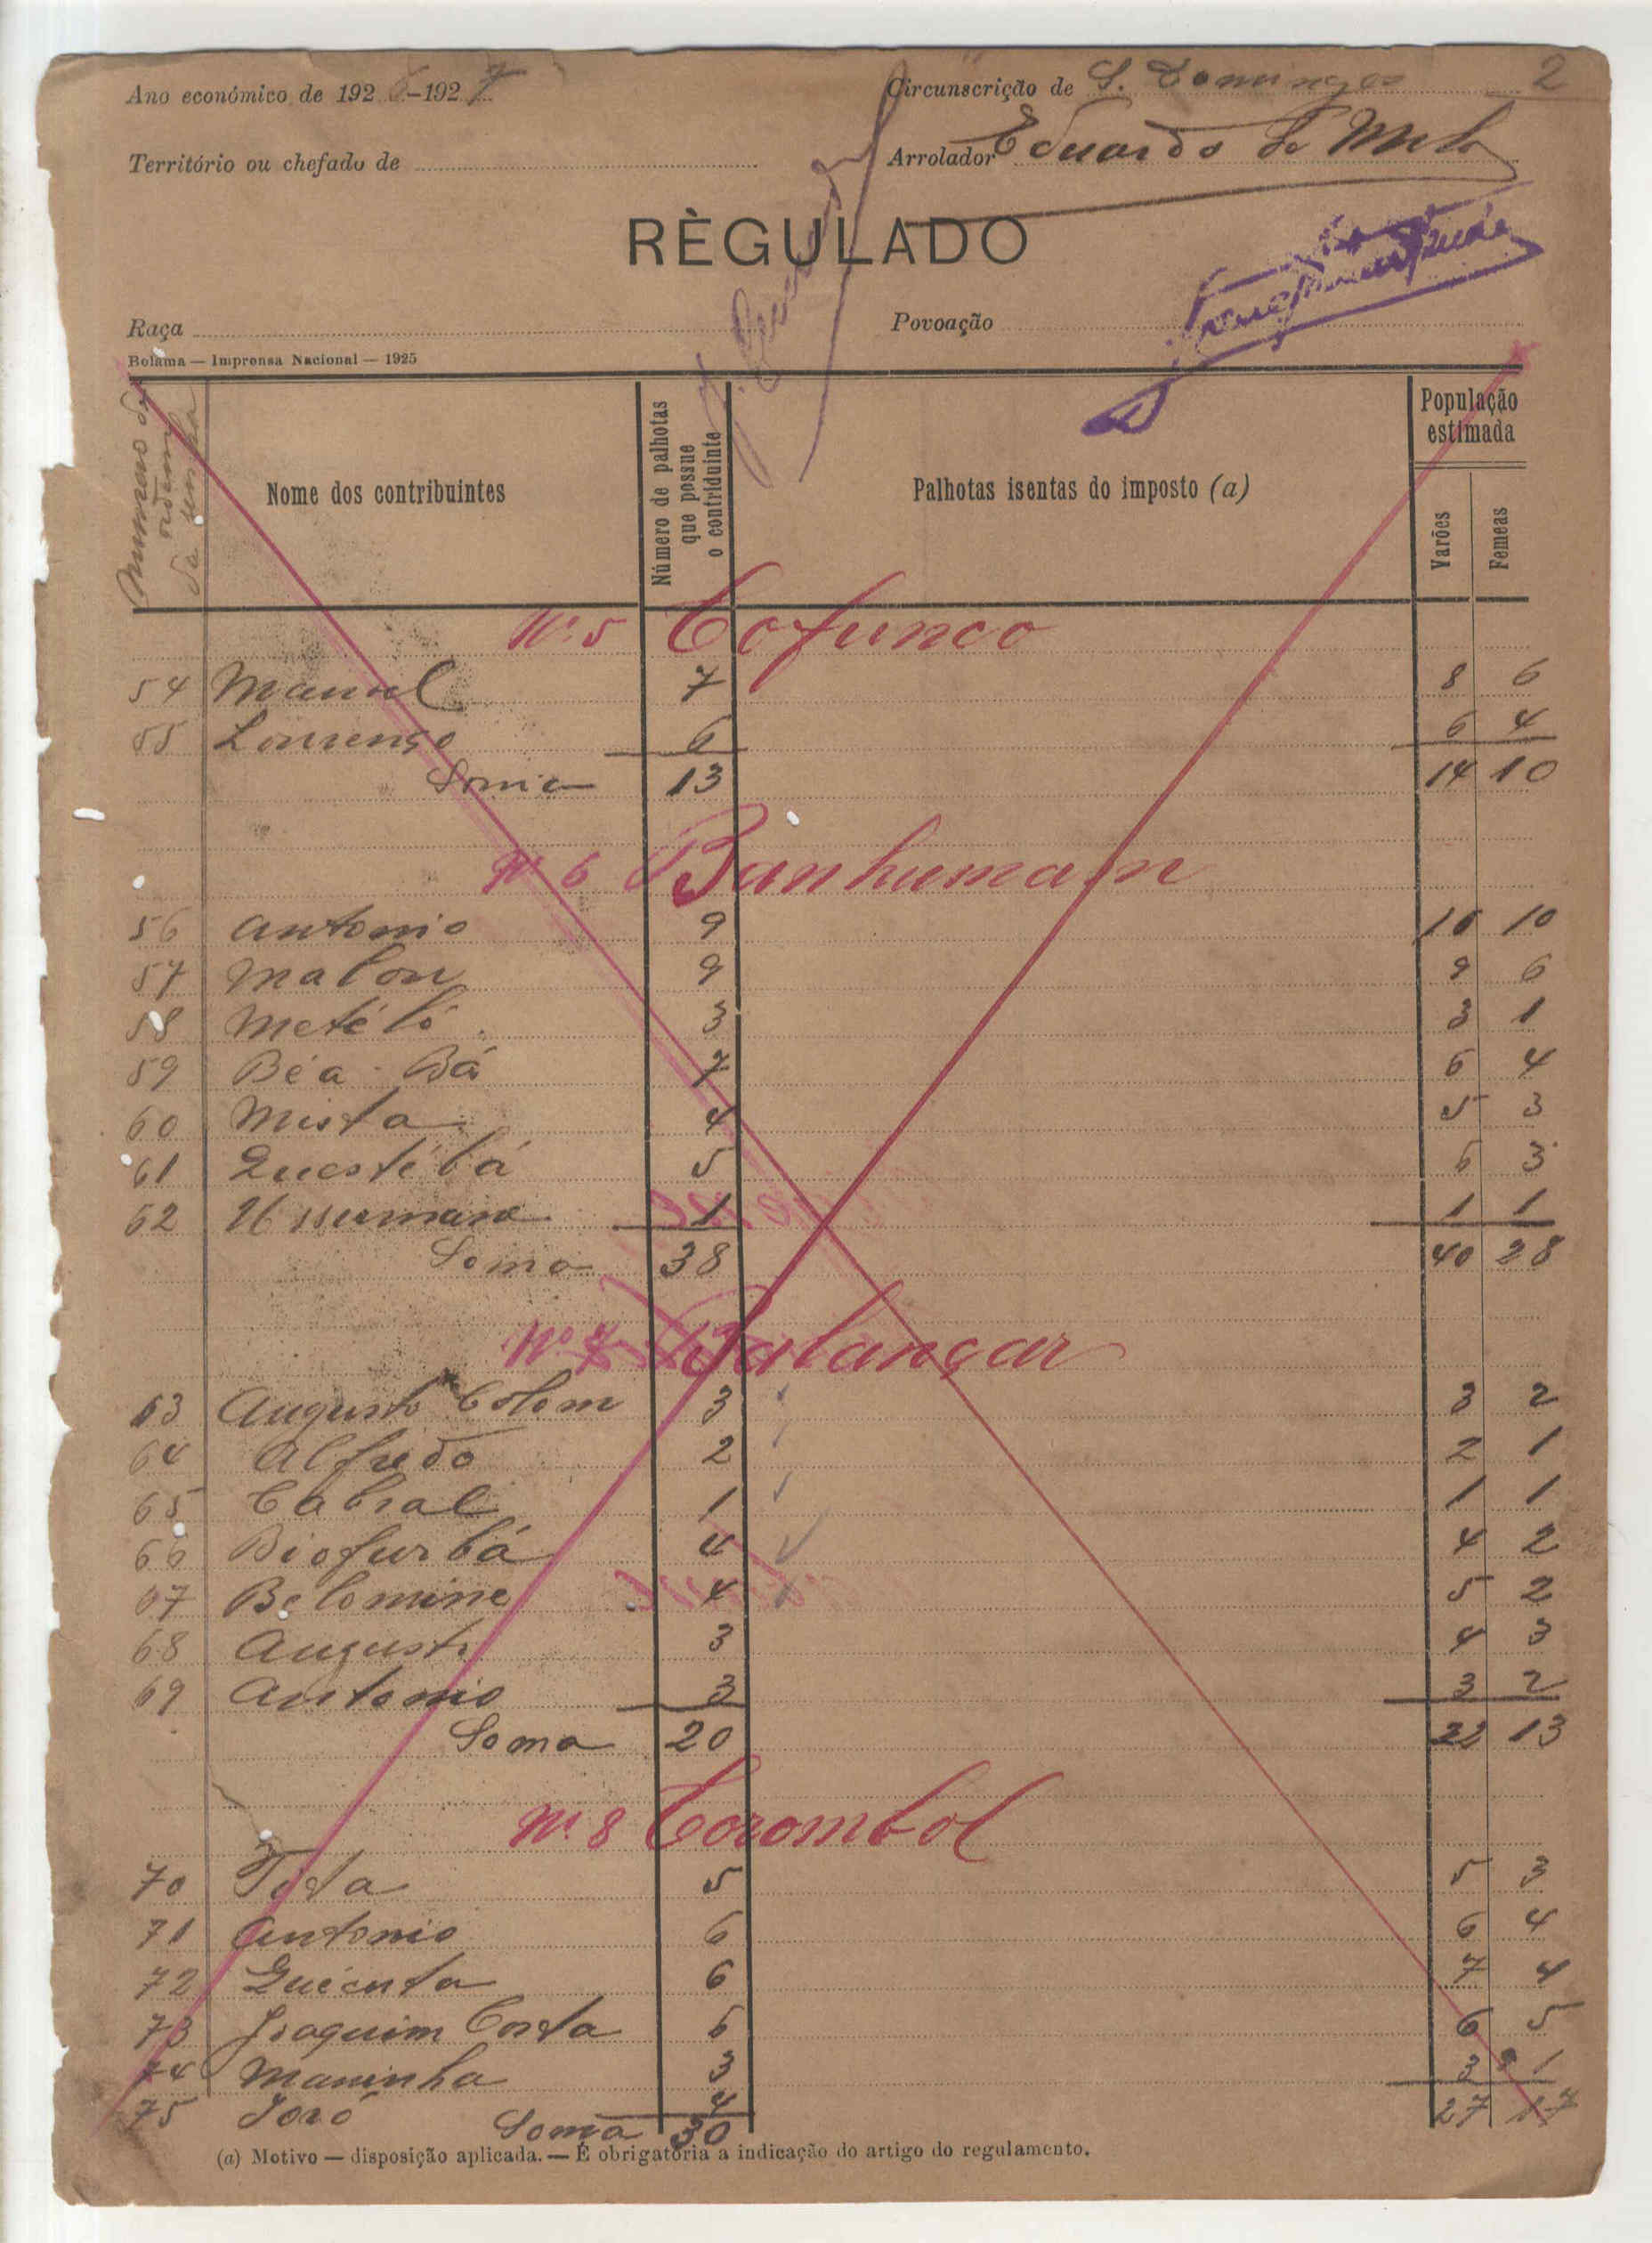 Ano económico de 1926-1927
Circunscrição de S. Domingos 2
Território ou chefado de
Arrolador Eduardo de Melo
RÈGULADO
Raça
Povoação
Bolama — Imprensa Nacional — 1925
Numero de ordem da senha
Nome dos contribuintes
Número de palhotas que possue o contriduinte
Palhotas isentas do imposto (a)
População estimada
Varões Femeas
Nº 5 Cofunco
54 Manuel 7 8 6
55 Lourenço 6 6 4
Soma 13 14 10
Nº 6 Banhumam
56 Antonio 9 10 10
57 Malon 9 9 6
58 Metéló 3 3 1
59 Béa-Bá 7 6 4
60 Mista 4 5 3
61 Questébá 5 6 3
62 Ussumane 1 1 1
Soma 38 40 28
Nº 7 Balançar
63 Augusto Colom 3 3 2
64 Alfredo 2 2 1
65 Cabral 1 1 1
66 Biofurbá 4 4 2
67 Belomine 4 5 2
68 Augusto 3 4 3
69 Antonio 3 3 2
Soma 20 22 13
Nº 8 Corombol
70 Tista 5 5 3
71 Antonio 6 6 4
72 Quécuta 6 7 4
73 Joaquim Costa 6 6 5
74 Maninha 3 3 1
75 Joró 4
Soma 30 27 17
(a) Motivo — disposição aplicada. — É obrigatória a indicação do artigo do regulamento.